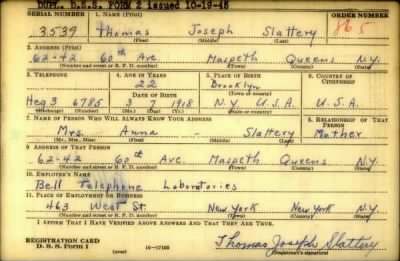 DUPL. D.S.S. FORM 2 issued 10-19-45
SERIAL NUMBER 1. NAME (Print) ORDER NUMBER
3539 Thomas Joseph Slattery 865
(First) (Middle) (Last)
2. ADDRESS (Print)
62-42 60th Ave. Maspeth Queens N.Y.
(Number and street or R. F. D. number) (Town) (County) (State)
3. TELEPHONE 4. AGE IN YEARS 5. PLACE OF BIRTH 6. COUNTRY OF CITIZENSHIP
22 Brooklyn
DATE OF BIRTH (Town or county)
Heg 3 6785 3 7 1918 N.Y. U.S.A. U.S.A.
(Exchange) (Number) (Mo.) (Day) (Yr.) (State or country)
7. NAME OF PERSON WHO WILL ALWAYS KNOW YOUR ADDRESS 8. RELATIONSHIP OF THAT PERSON
Mrs. Anna - Slattery Mother
(Mr., Mrs., Miss) (First) (Middle) (Last)
9. ADDRESS OF THAT PERSON
62-42 60th Ave. Maspeth Queens N.Y.
(Number and street or R. F. D. number) (Town) (County) (State)
10. EMPLOYER'S NAME
Bell Telephone Laboratories
11. PLACE OF EMPLOYMENT OR BUSINESS
463 West St. New York New York N.Y.
(Number and street or R. F. D. number) (Town) (County) (State)
I AFFIRM THAT I HAVE VERIFIED ABOVE ANSWERS AND THAT THEY ARE TRUE.
REGISTRATION CARD
D. S. S. Form 1 (over) 16-17105 Thomas Joseph Slattery
(Registrant's signature)